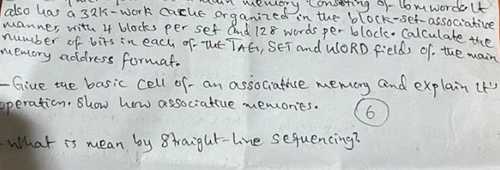 main memory consisting of 16m words. It
also has a 32K-work cache organized in the block-set-associative
manner, with 4 blocks per set and 128 words per block. Calculate the
number of bits in each of the TAG, SET and WORD fields of the main
memory address format.
- Give the basic cell of an associative memory and explain it's
operation. Show how associative memories.
6
- What is mean by straight-line sequencing?